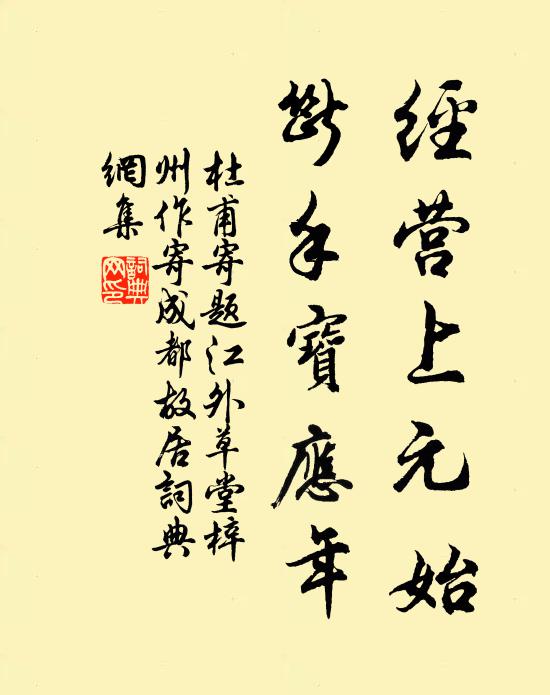 經营上元始
斷手寶應年
杜甫寄題江外草堂梓
州作寄成都故居詞典
網集
詞典
网印